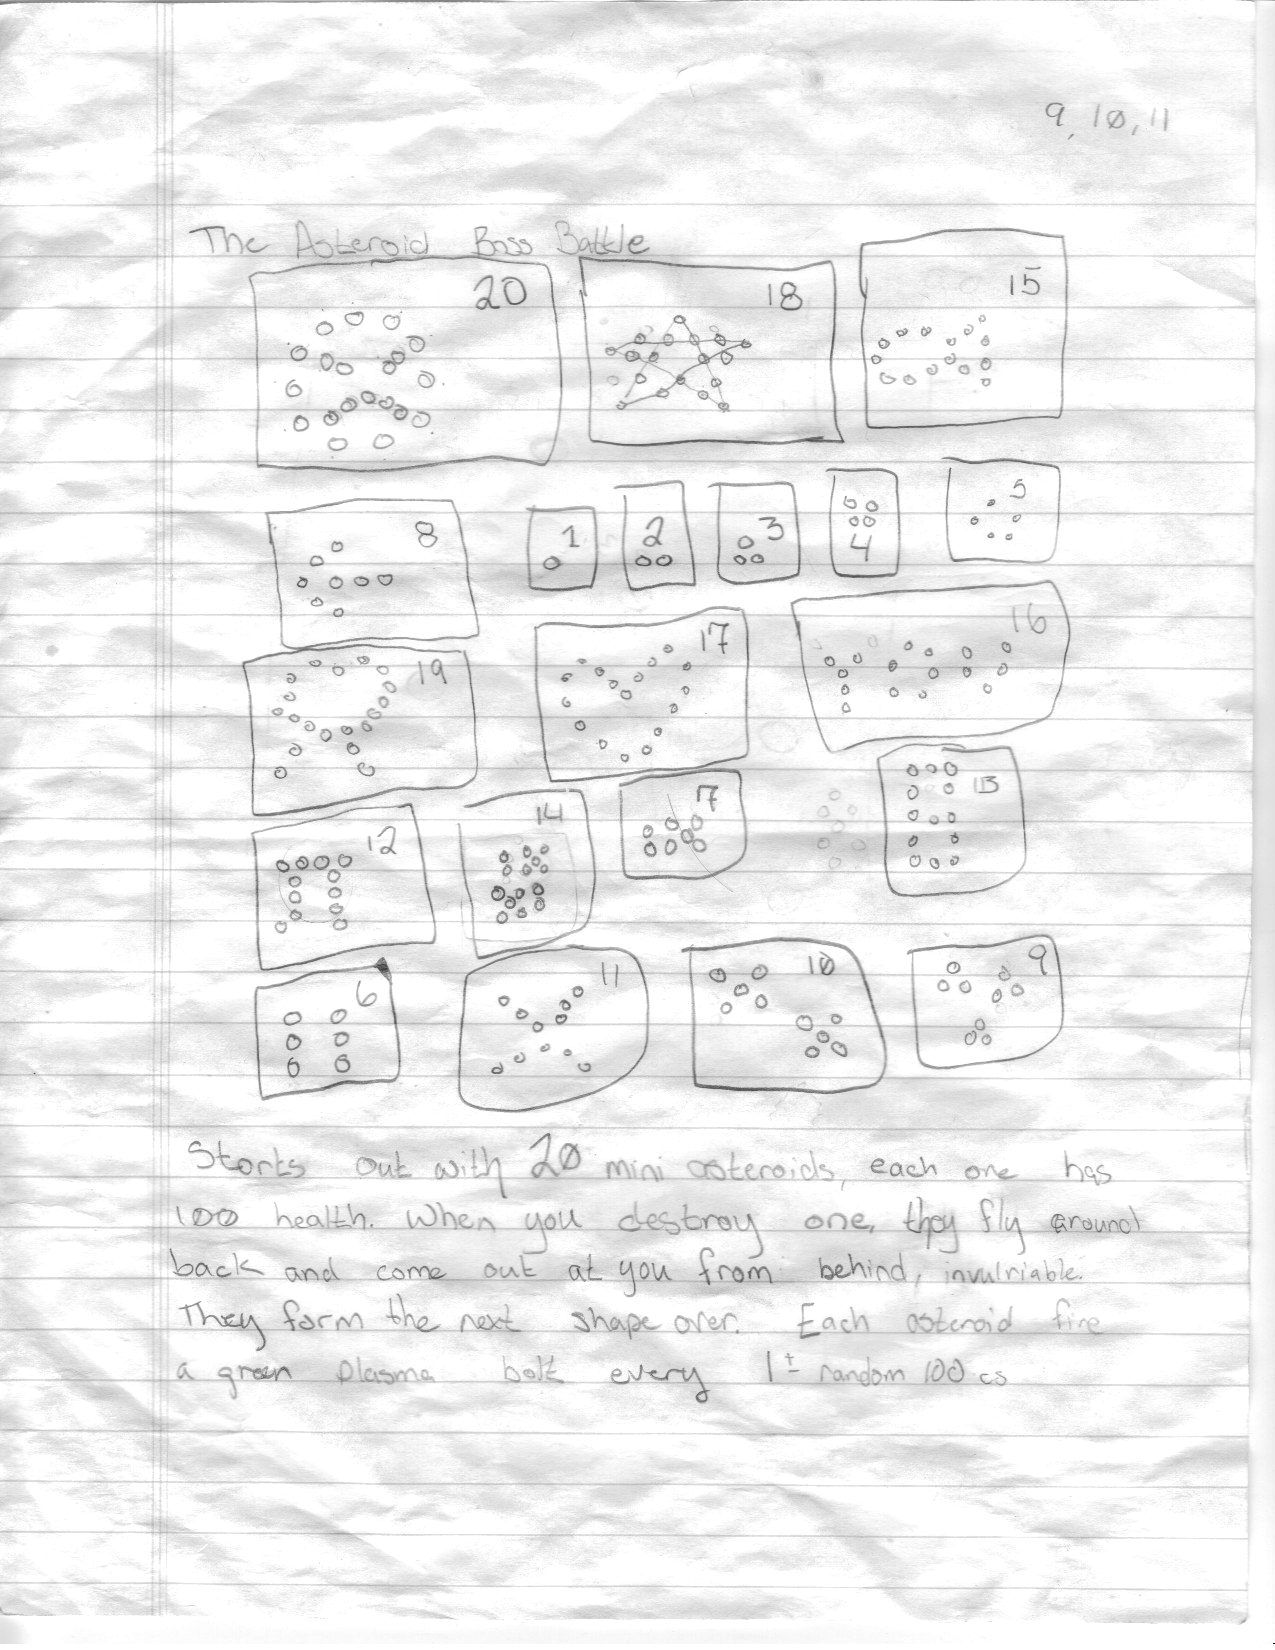 9, 10, 11
The Asteroid Boss Battle
20
18
15
8
1
2
3
4
5
19
17
16
12
14
7
13
6
11
10
9
Starts out with 20 mini asteroids, each one has
100 health. When you destroy one, they fly around
back and come out at you from behind, invulriable.
They form the next shape over. Each asteroid fire
a green plasma bolt every 1± random 100 cs